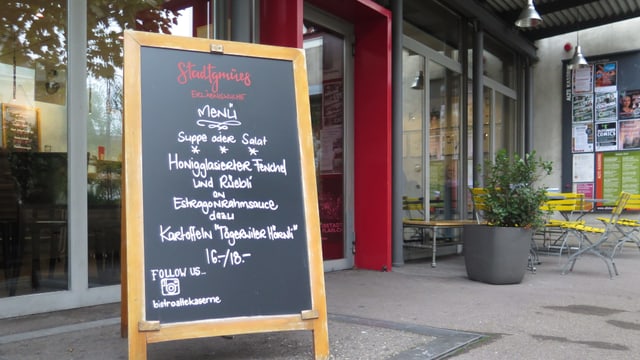 Stadtgmües
MENÜ
Suppe oder Salat
* * *
Honigglasierter Fenchel
und Rüebli
an
Estragonrahmsauce
dazu
Kartoffeln "Tägerwiler Hörnli"
16.-/18.-
FOLLOW US..
bistroaltekaserne